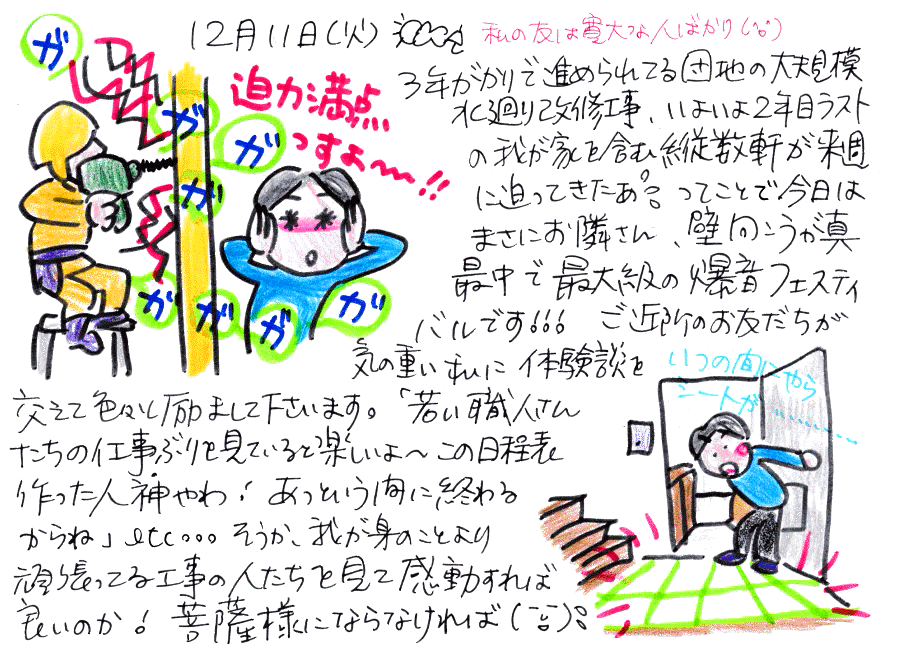 12月11日(火)
私の友は寛大な人ばかり(^o^)
3年がかりで進められてる団地の大規模
水廻り改修工事、いよいよ2年目ラスト
の我が家を含む縦数軒が来週
に迫ってきたあ。ってことで今日は
まさにお隣さん、壁向こうが真
最中で最大級の爆音フェスティ
バルです!!! ご近所のお友だちが
気の重い私に体験談を
交えて色々励まして下さいます。「若い職人さん
たちの仕事ぶりを見ていると楽しいよ〜この日程表
作った人神やわ! あっという間に終わる
からね」etc... そうか、我が身のことより
頑張ってる工事の人たちを見て感動すれば
良いのか! 菩薩様にならなければ
迫力満点
っすよ〜!!
ガ
ガ
ガ
ガ
ガ
ガ
ガ
ガ
いつの間にやら
シートが…………